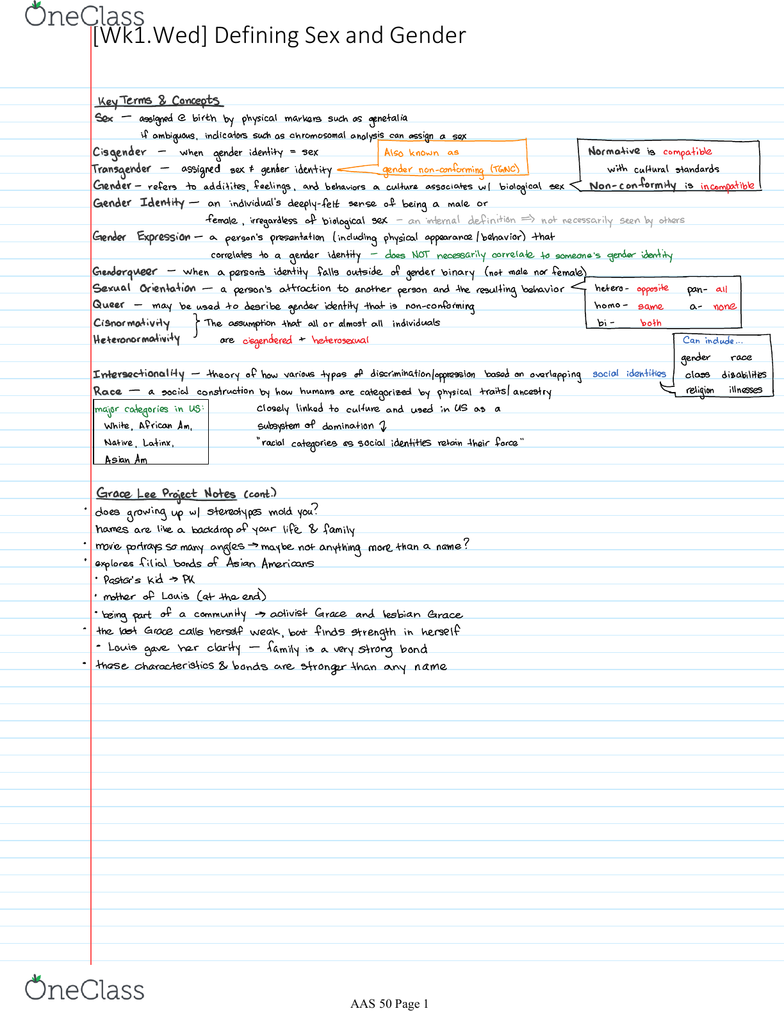 OneClass
[Wk1.Wed] Defining Sex and Gender
Key Terms & Concepts
Sex — assigned @ birth by physical markers such as genetalia
if ambiguous, indicators such as chromosomal analysis can assign a sex
Cisgender — when gender identity = sex
Also known as
Normative is compatible
Transgender — assigned sex ≠ gender identity
gender non-conforming (TGNC)
with cultural standards
Gender — refers to additites, feelings, and behaviors a culture associates w/ biological sex
Non-conformity is incompatible
Gender Identity — an individual's deeply-felt sense of being a male or
female, irregardless of biological sex — an internal definition ⇒ not necessarily seen by others
Gender Expression — a person's presentation (including physical appearance/behavior) that
correlates to a gender identity — does NOT necessarily correlate to someone's gender identity
Genderqueer — when a person's identity falls outside of gender binary (not male nor female)
Sexual Orientation — a person's attraction to another person and the resulting behavior
hetero- opposite pan- all
Queer — may be used to desribe gender identity that is non-conforming
homo- same a- none
Cisnormativity } The assumption that all or almost all individuals
bi- both
Heteronormativity are cisgendered + heterosexual
Can include...
gender race
Intersectionality — theory of how various types of discrimination/oppression based on overlapping social identities
class disabilites
Race — a social construction by how humans are categorized by physical traits/ancestry
religion illnesses
major categories in US:
closely linked to culture and used in US as a
White, African Am,
subsystem of domination
Native, Latinx,
"racial categories as social identities retain their force"
Asian Am
Grace Lee Project Notes (cont.)
• does growing up w/ stereotypes mold you?
names are like a backdrop of your life & family
• movie portrays so many angles → maybe not anything more than a name?
• explores filial bonds of Asian Americans
• Pastor's kid → PK
• mother of Louis (at the end)
• being part of a community → activist Grace and lesbian Grace
• the last Grace calls herself weak, but finds strength in herself
- Louis gave her clarity — family is a very strong bond
• these characteristics & bonds are stronger than any name
OneClass
AAS 50 Page 1